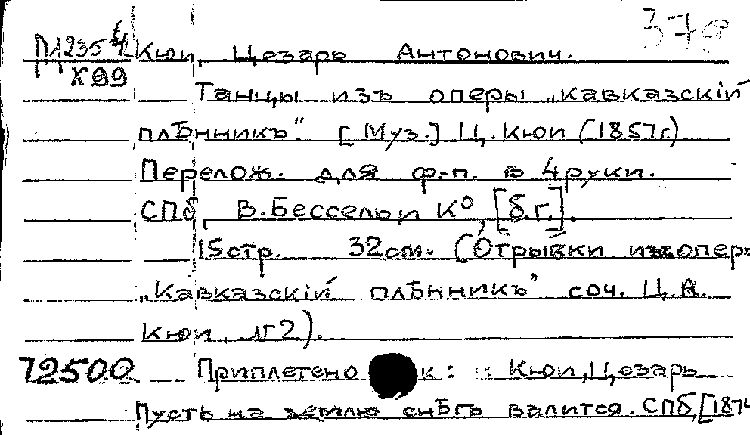 М235.4 Кюи, Цезарь Антонович.
К99
Танцы изъ оперы „Кавказскій
плѣнникъ". [Муз.] Ц. Кюи (1857г.)
Перелож. для ф-п. в 4 руки.
СПб, В. Бессель и К⁰, [б.г.].
15 стр. 32 см. (Отрывки из опер
„Кавказскій плѣнникъ" соч. Ц.А.
Кюи, №2).
72500 Приплетено к: Кюи, Цезарь
Пусть на землю снѣгъ валится. СПб, [187